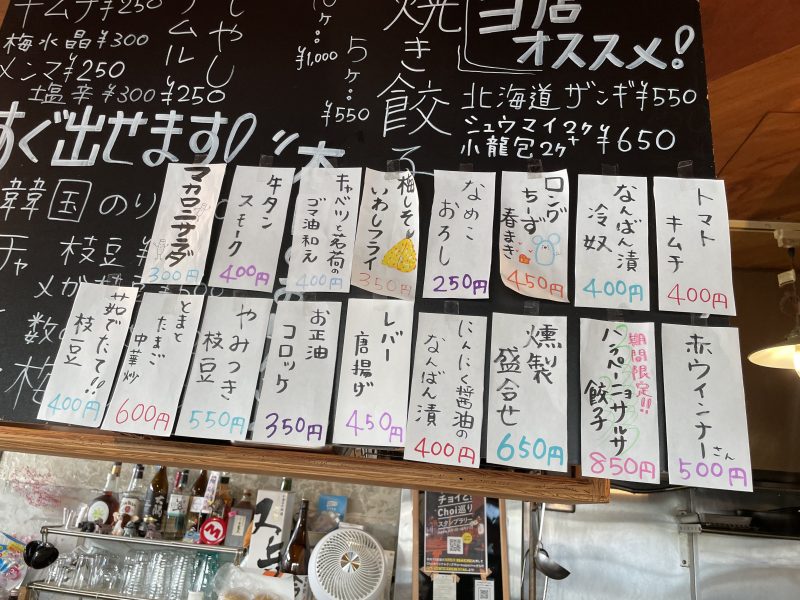 当店
オススメ!
北海道ザンギ¥550
シュウマイ2ケ+
小龍包2ケ
¥650
焼き餃子
¥1,000
5ケ:
¥550
キムチ¥250
梅水晶¥300
メンマ¥250
塩辛¥300
¥250
すぐ出せます!
韓国のり
枝豆
トマト
キムチ
400円
なんばん漬
冷奴
400円
ロング
ちーず
春まき
450円
なめこ
おろし
250円
梅しそ
いわしフライ
350円
キャベツと茗荷の
ゴマ油和え
400円
牛タン
スモーク
400円
マカロニサラダ
300円
赤ウインナーさん
500円
期間限定!!
ハラペーニョサルサ
餃子
850円
燻製
盛合せ
650円
にんにく醤油の
なんばん漬
400円
レバー
唐揚げ
450円
お正油
コロッケ
350円
やみつき
枝豆
550円
とまと
たまご
中華炒
600円
茹でたて!!
枝豆
400円
チョイと
Choi巡り
スタンプラリー